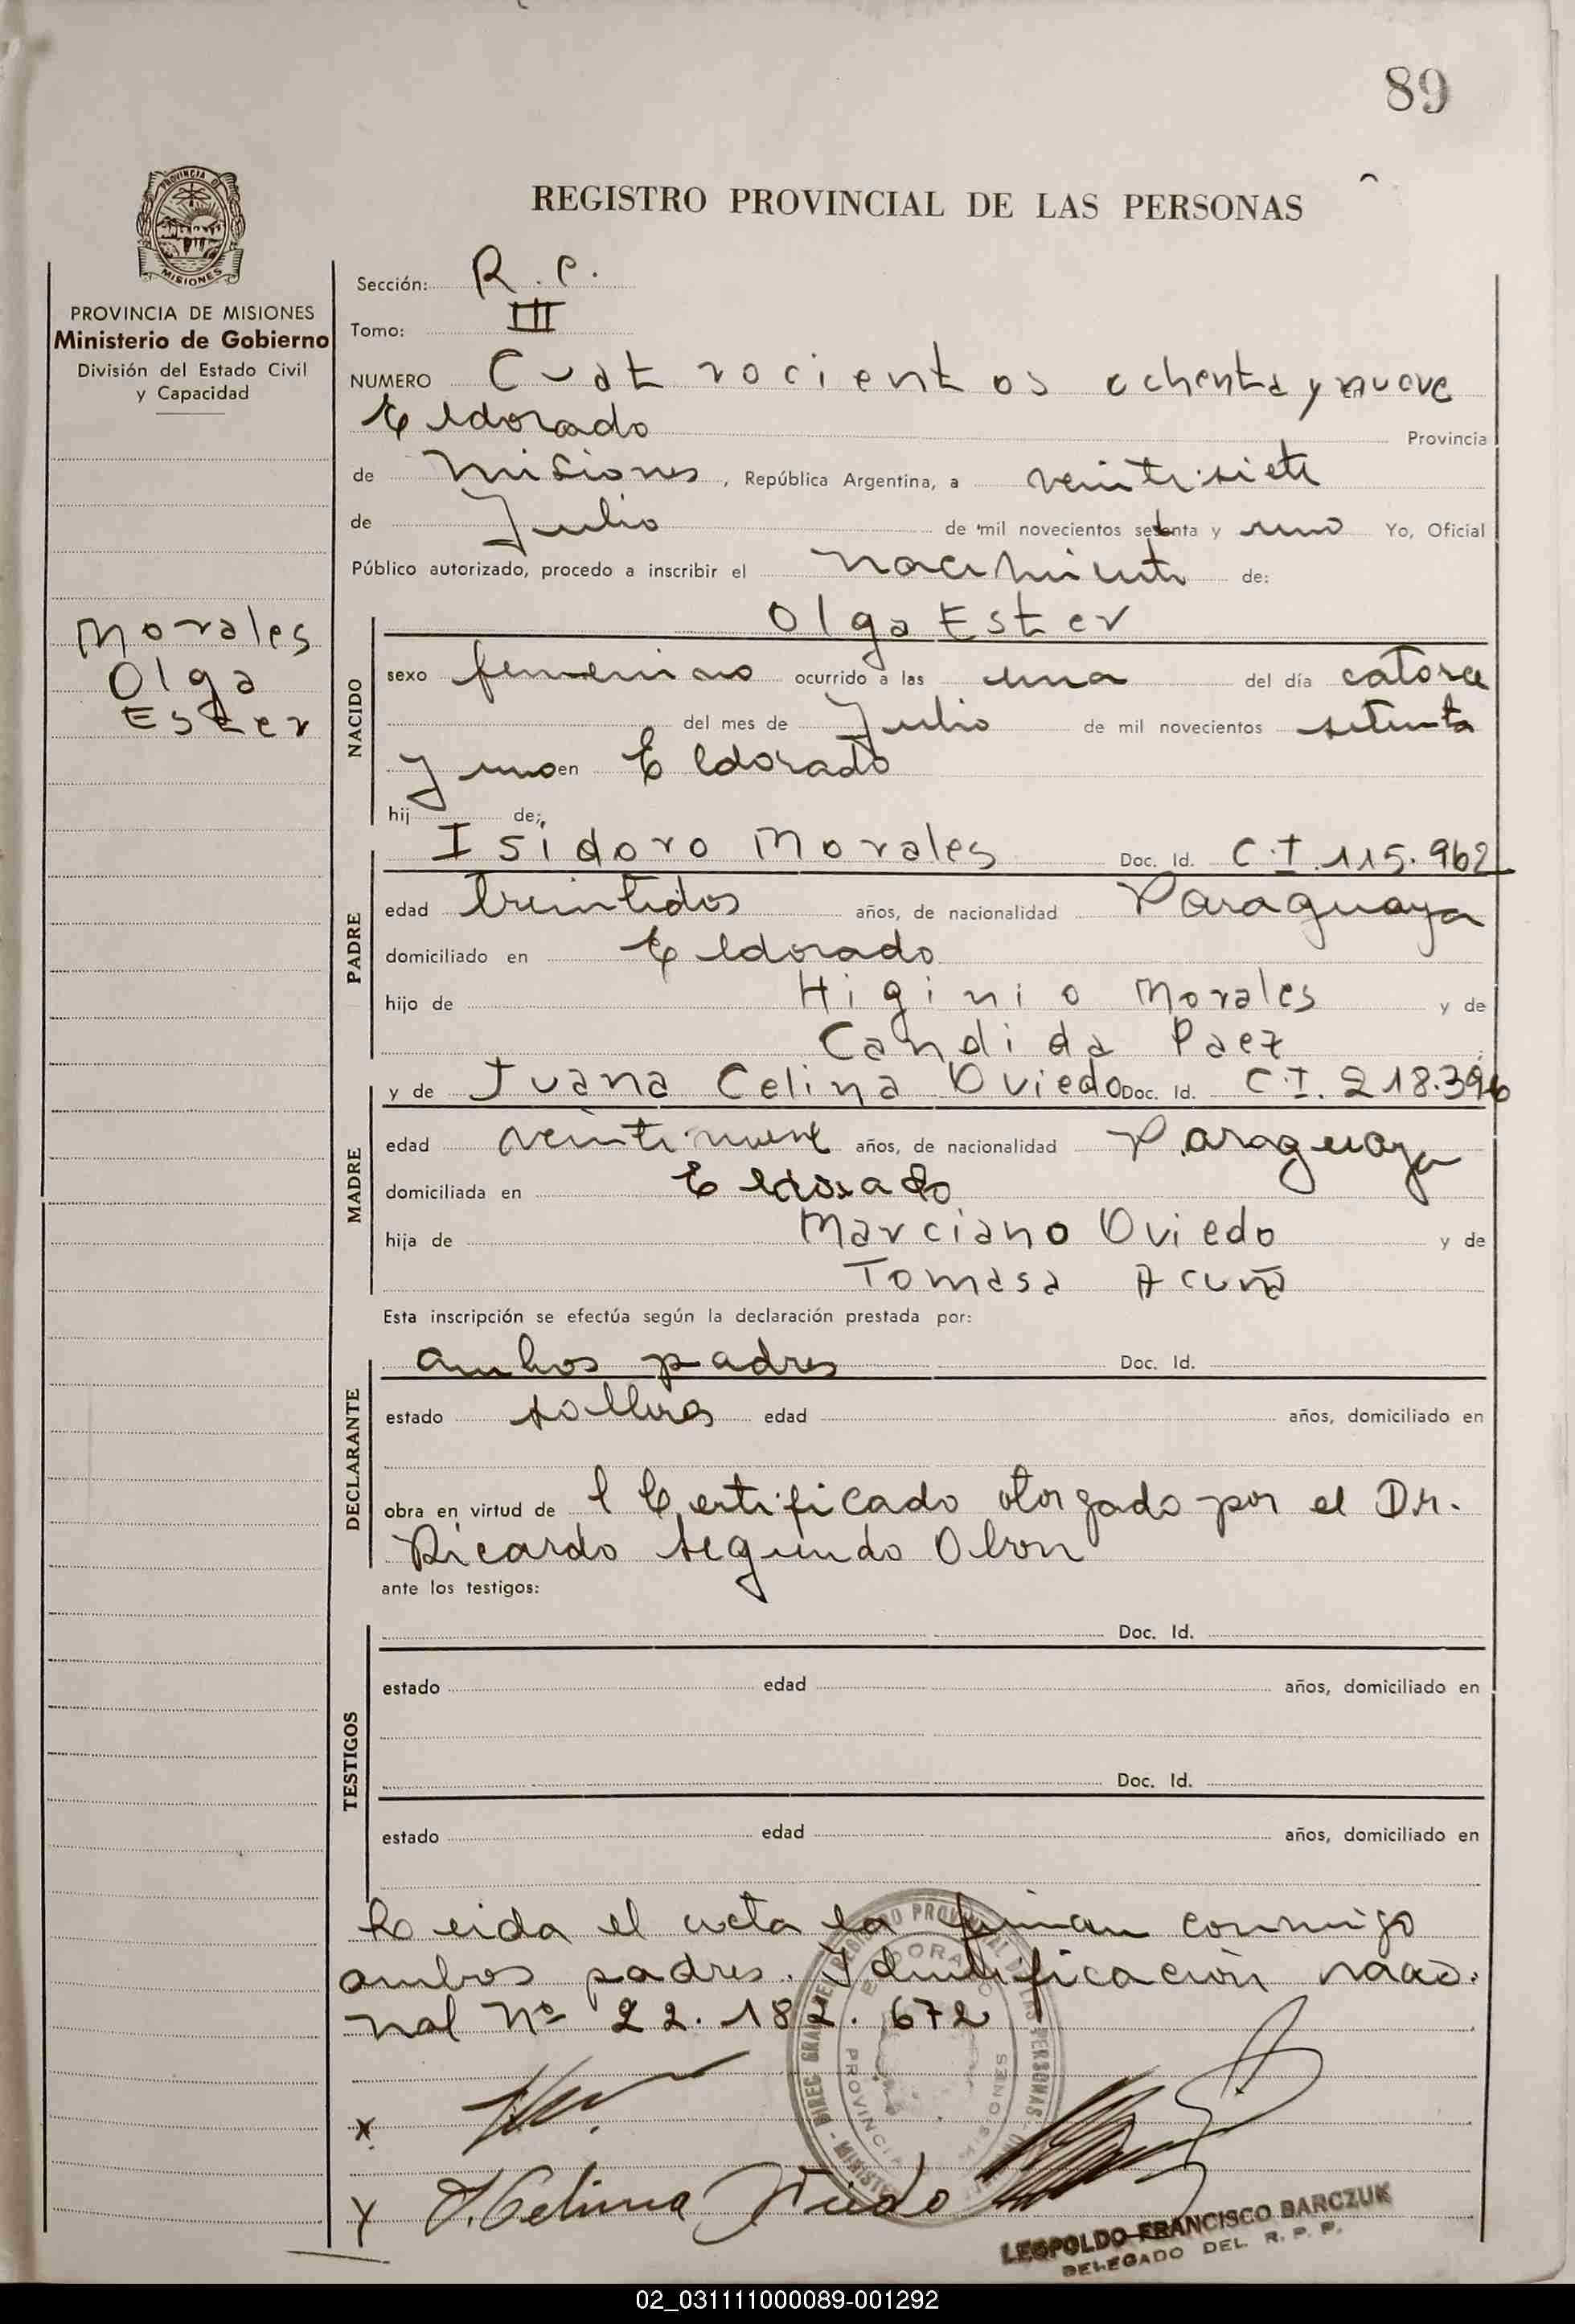 89
REGISTRO PROVINCIAL DE LAS PERSONAS
PROVINCIA DE MISIONES
Ministerio de Gobierno
División del Estado Civil
y Capacidad
Morales
Olga
Ester
Sección: R. C.
Tomo: III
NUMERO Cuatrocientos ochenta y nueve
Eldorado Provincia
de Misiones, República Argentina, a veintisiete
de Julio de mil novecientos setenta y uno Yo, Oficial
Público autorizado, procedo a inscribir el nacimiento de:
NACIDO
Olga Ester
sexo femenino ocurrido a las una del día catorce
del mes de Julio de mil novecientos setenta
y uno en Eldorado
hij de:
PADRE
Isidoro Morales Doc. Id. C.I. 115.962
edad treintidos años, de nacionalidad Paraguaya
domiciliado en Eldorado
hijo de Higinio Morales y de
Candida Paez
MADRE
y de Juana Celina Oviedo Doc. Id. C.I. 218.396
edad veintinueve años, de nacionalidad Paraguaya
domiciliada en Eldorado
hija de Marciano Oviedo y de
Tomasa Acuña
Esta inscripción se efectúa según la declaración prestada por:
DECLARANTE
ambos padres Doc. Id.
estado solteros edad años, domiciliado en
obra en virtud de l Certificado otorgado por el Dr.
Ricardo Segundo Obon
ante los testigos:
TESTIGOS
Doc. Id.
estado edad años, domiciliado en
Doc. Id.
estado edad años, domiciliado en
Leida el acta la firman conmigo
ambos padres. Identificación nacio.
nal Nº 22.182.672
x
x J. Celina Oviedo
LEOPOLDO FRANCISCO BARCZUK
DELEGADO DEL R. P. P.
02_031111000089-001292